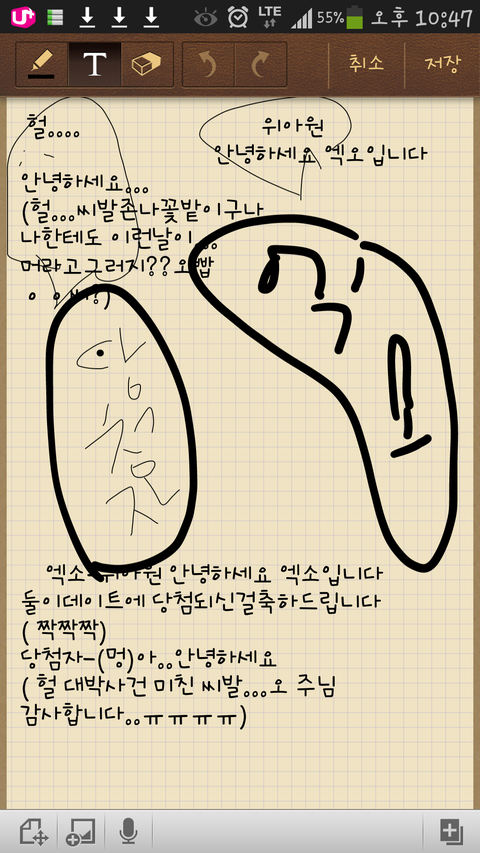 U+
LTE
55%
오후 10:47
T
취소
저장
헐....
위아원
안녕하세요 엑소입니다
안녕하세요...
(헐...씨발존나꽃밭이구나
나한테도 이런날이...
머라고그러지??오빱
당첨자
엑소-위아원 안녕하세요 엑소입니다
둘이데이트에 당첨되신걸축하드립니다
( 짝짝짝)
당첨자-(멍)아..안녕하세요
( 헐 대박사건 미친 씨발...오 주님
감사합니다..ㅠㅠㅠㅠ)